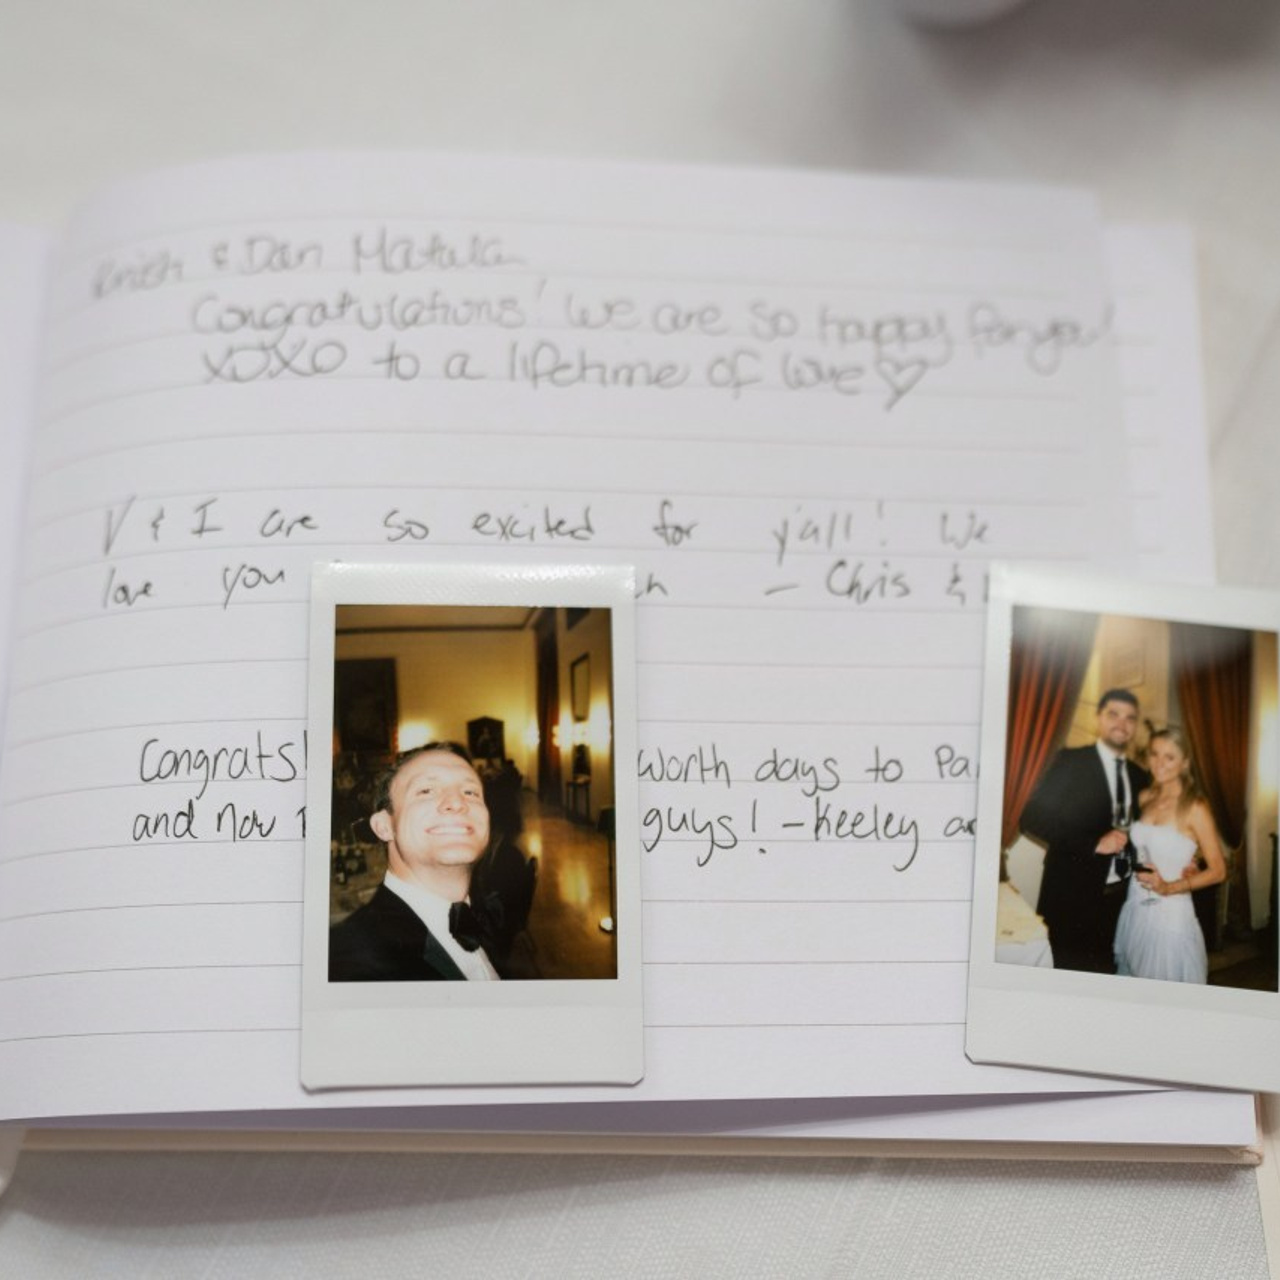 & Dan Matula
Congratulations! We are so happy for you!
XOXO to a lifetime of love ♡
V & I are so excited for y'all! We
love you - Chris &
Congrats! worth days to
and now guys! - Keeley